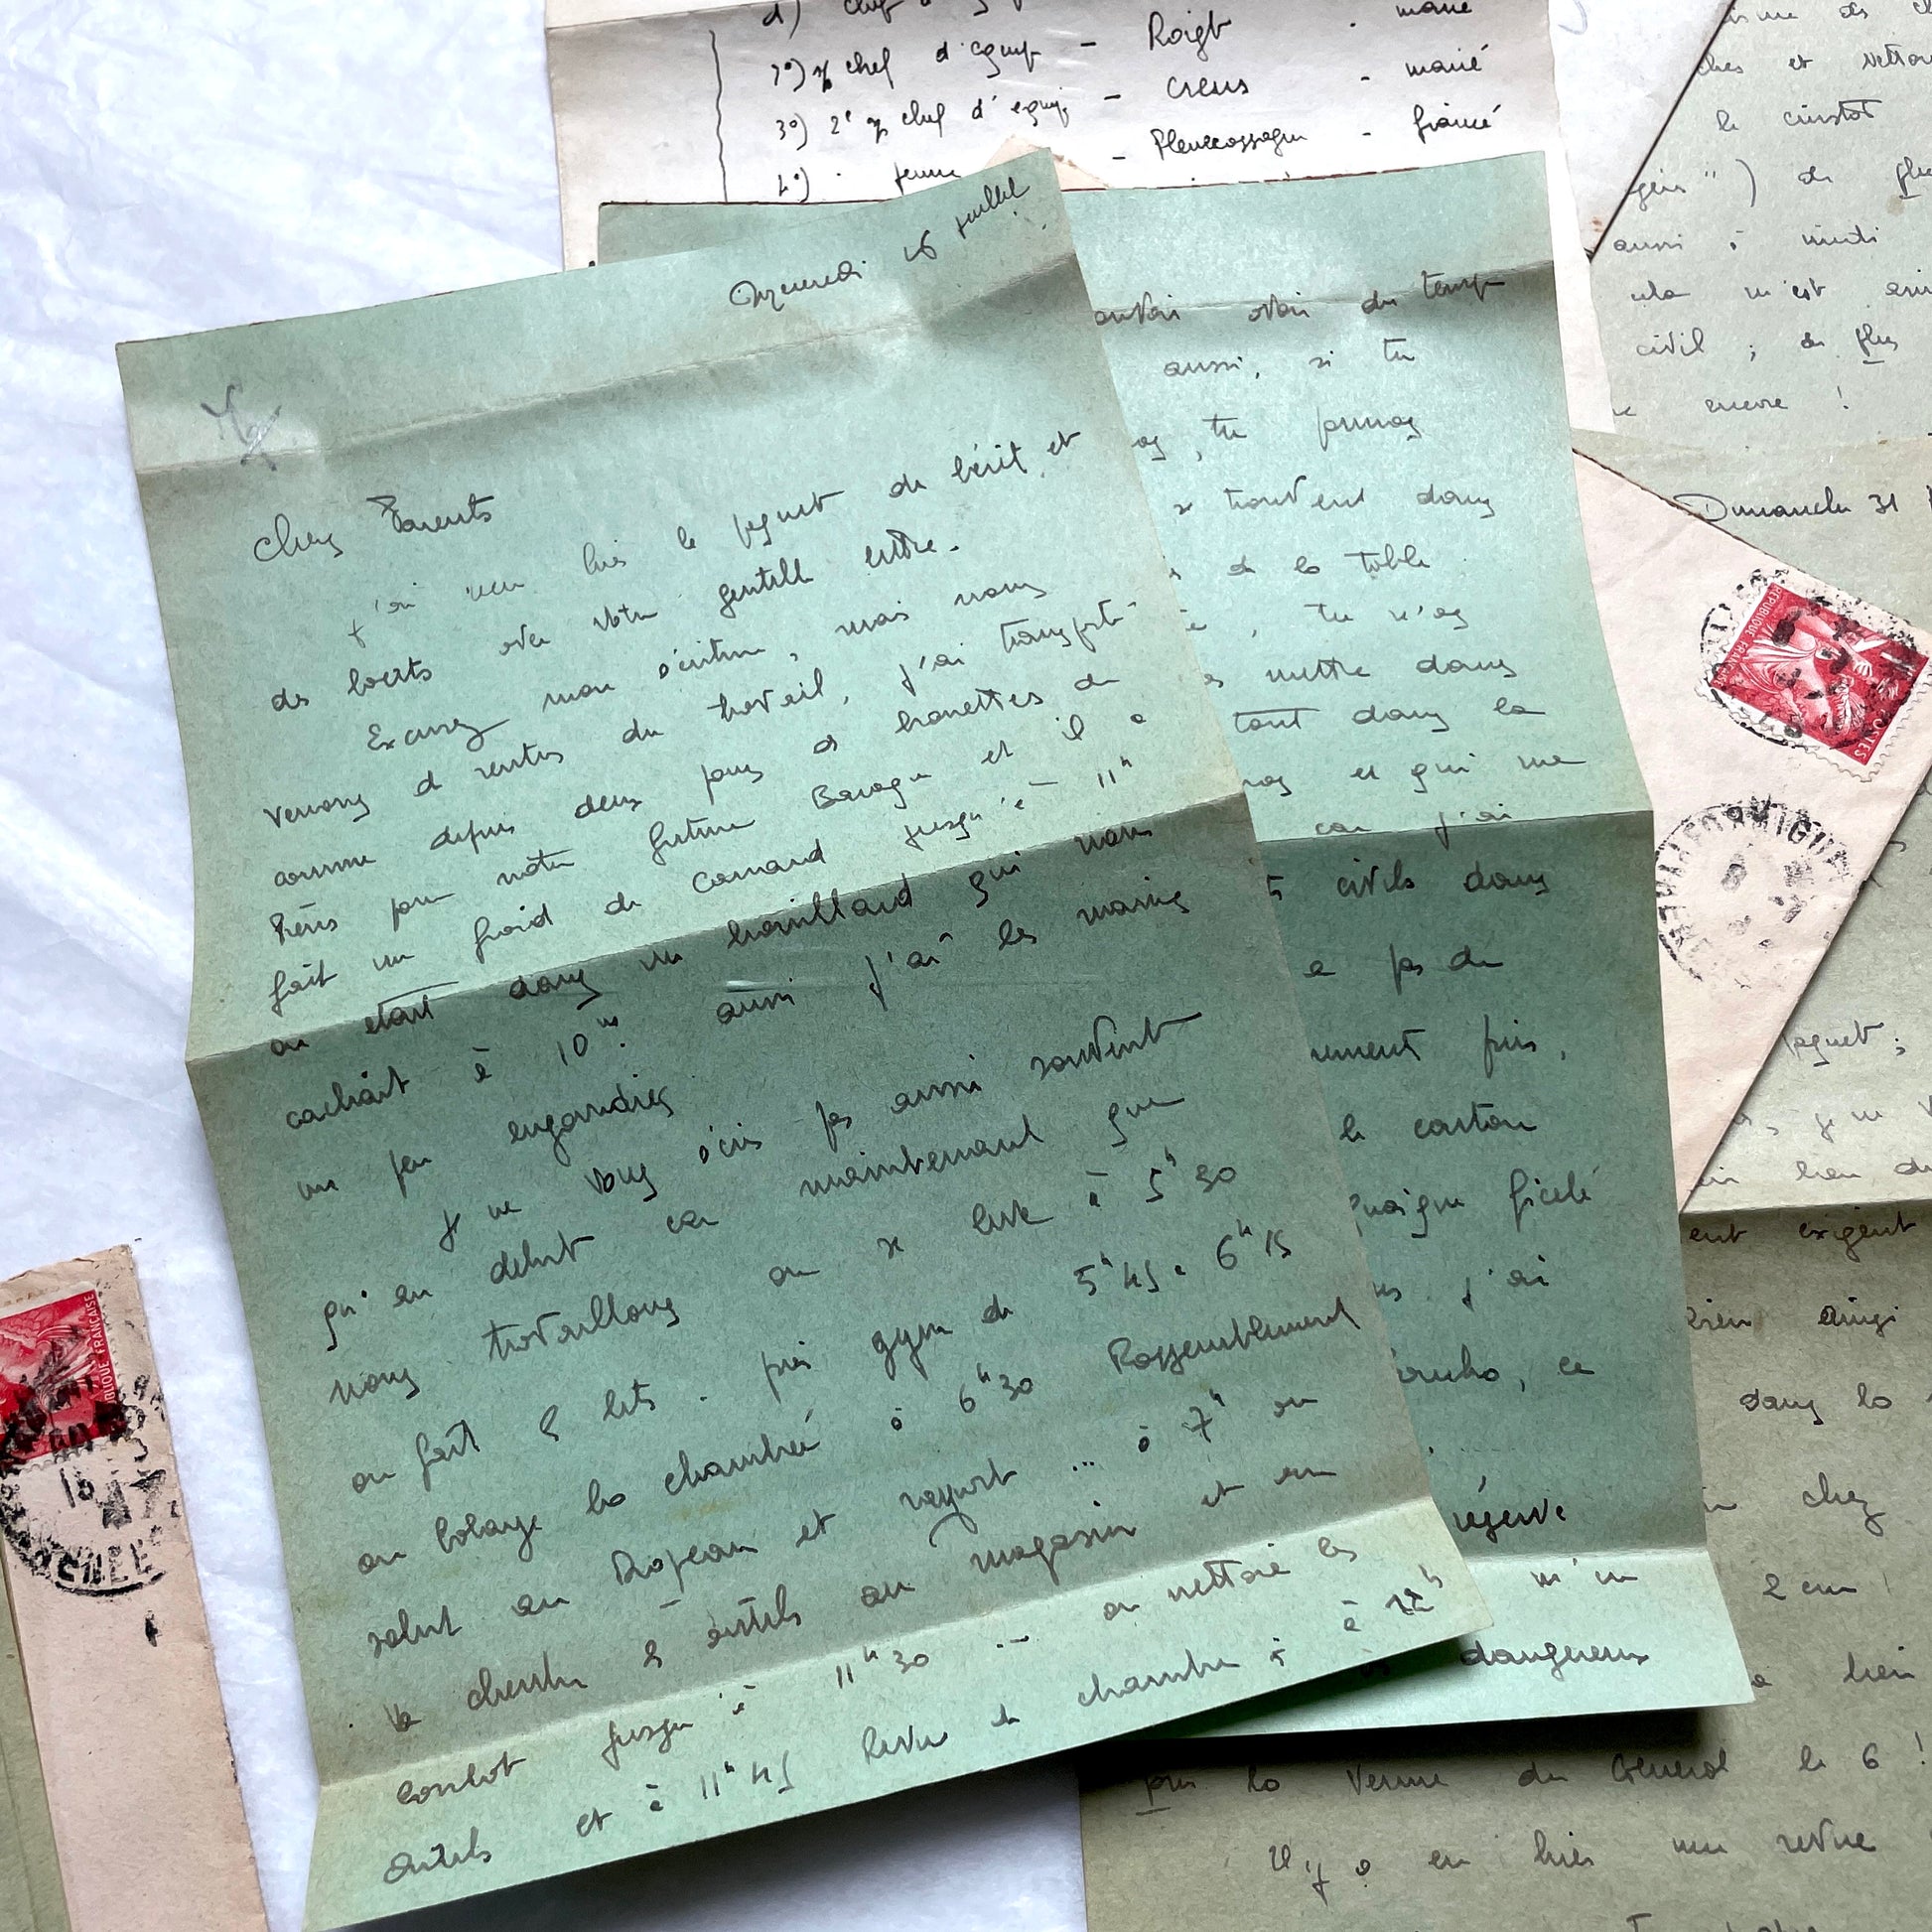 d) chef
2°) chef d'equip - Roigt - marié
3°) 2e chef d'equip - Creus - marié
4°) jeune - - fiancé
Mercredi 16 juillet
Chers Parents
j'ai reçu hier le paquet de bérit et
des boerts avec votre gentille lettre.
Excusez mon écriture, mais nous
venons de rentrer du travail, j'ai transporté
comme depuis deux jours des brouettes de
Pierres pour notre future Baraque et il a
fait un froid de canard jusqu'à 11h
on était dans un brouillard qui nous
cachait à 10m. aussi j'ai les mains
un peu engourdies
Je ne vous écris pas aussi souvent
qu'au debut car maintenant que
nous travaillons on se lève à 5h30
on fait les lits. puis gym de 5h45 à 6h15
on balaye la chambrée à 6h30 Rassemblement
salut au Drapeau et rapport ... à 7h on
va chercher les outils au magasin et on
boulot jusqu'à 11h30 ... on nettoie les
outils et à 11h45 Revue de chambre à 12h
avoir du temps
aussi, si tu
tu prenas
se trouvent dans
de la table
tu n'as
mettre dans
tout dans la
et qui me
car j'ai
civils dans
a pas de
puis,
le carton
ficelé
j'ai
ce
réserve
m'en
dangereux
et nettoy
le cuistot
") de plus
aussi à midi
cela m'est arri
civil ; de plus
encore !
Dimanche 31
REPUBLIQUE FRANÇAISE
POSTES
paquet ;
je ne v
lieu de
exigent
bien ainsi
dans la
chez
2 cm
bien
pour la venue du General le 6 !
Il y a eu hier une revue
REPUBLIQUE FRANÇAISE